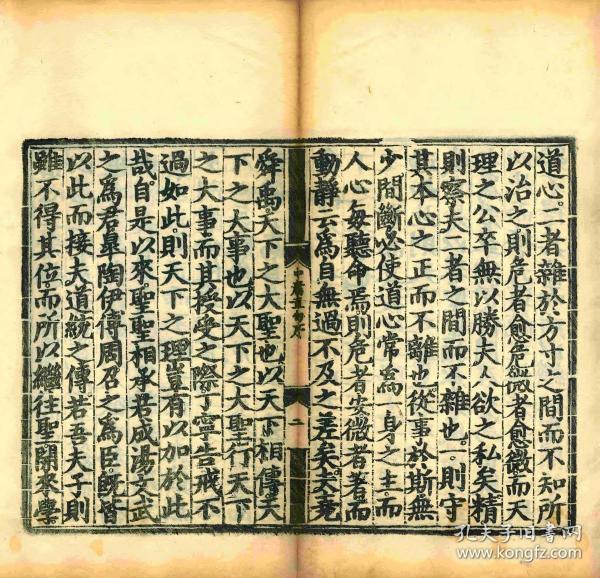 道心。二者雜於方寸之間而不知所
以治之則危者愈危微者愈微而天
理之公卒無以勝夫人欲之私矣精
則察夫二者之間而不雜也。一則守
其本心之正而不離也從事於斯無
少閒斷必使道心常爲一身之主而
人心每聽命焉則危者安微者著而
動靜云爲自無過不及之差矣。夫堯
中庸章句序
二
舜禹天下之大聖也以天下相傳天
下之大事也。以天下之大聖行天下
之大事而其授受之際丁寧告戒不
過如此。則天下之理豈有以加於此
哉。自是以來。聖聖相承。若成湯文武
之爲君。臯陶伊傅周召之爲臣。旣皆
以此而接夫道統之傳。若吾夫子則
雖不得其位。而所以繼往聖開來學
孔夫子旧书网
www.kongfz.com